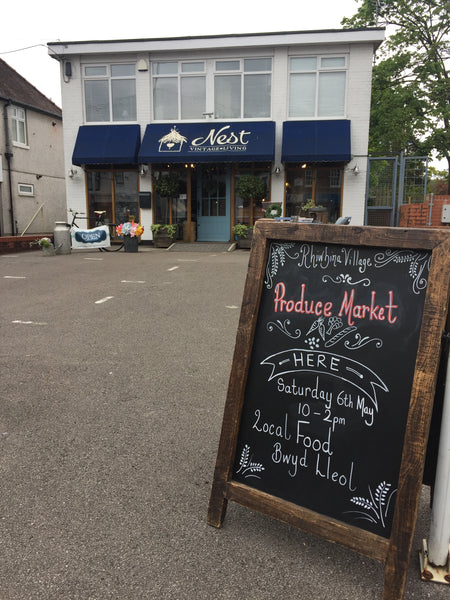 Nest
VINTAGE LIVING
Rhiwbina Village
Produce Market
HERE
Saturday 6th May
10 - 2pm
Local Food
Bwyd Lleol